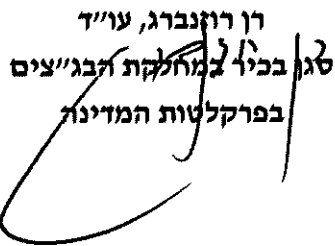 רן רוזנברג, עו״ד
סגן בכיר במחלקת הבג״צים
בפרקליטות המדינה